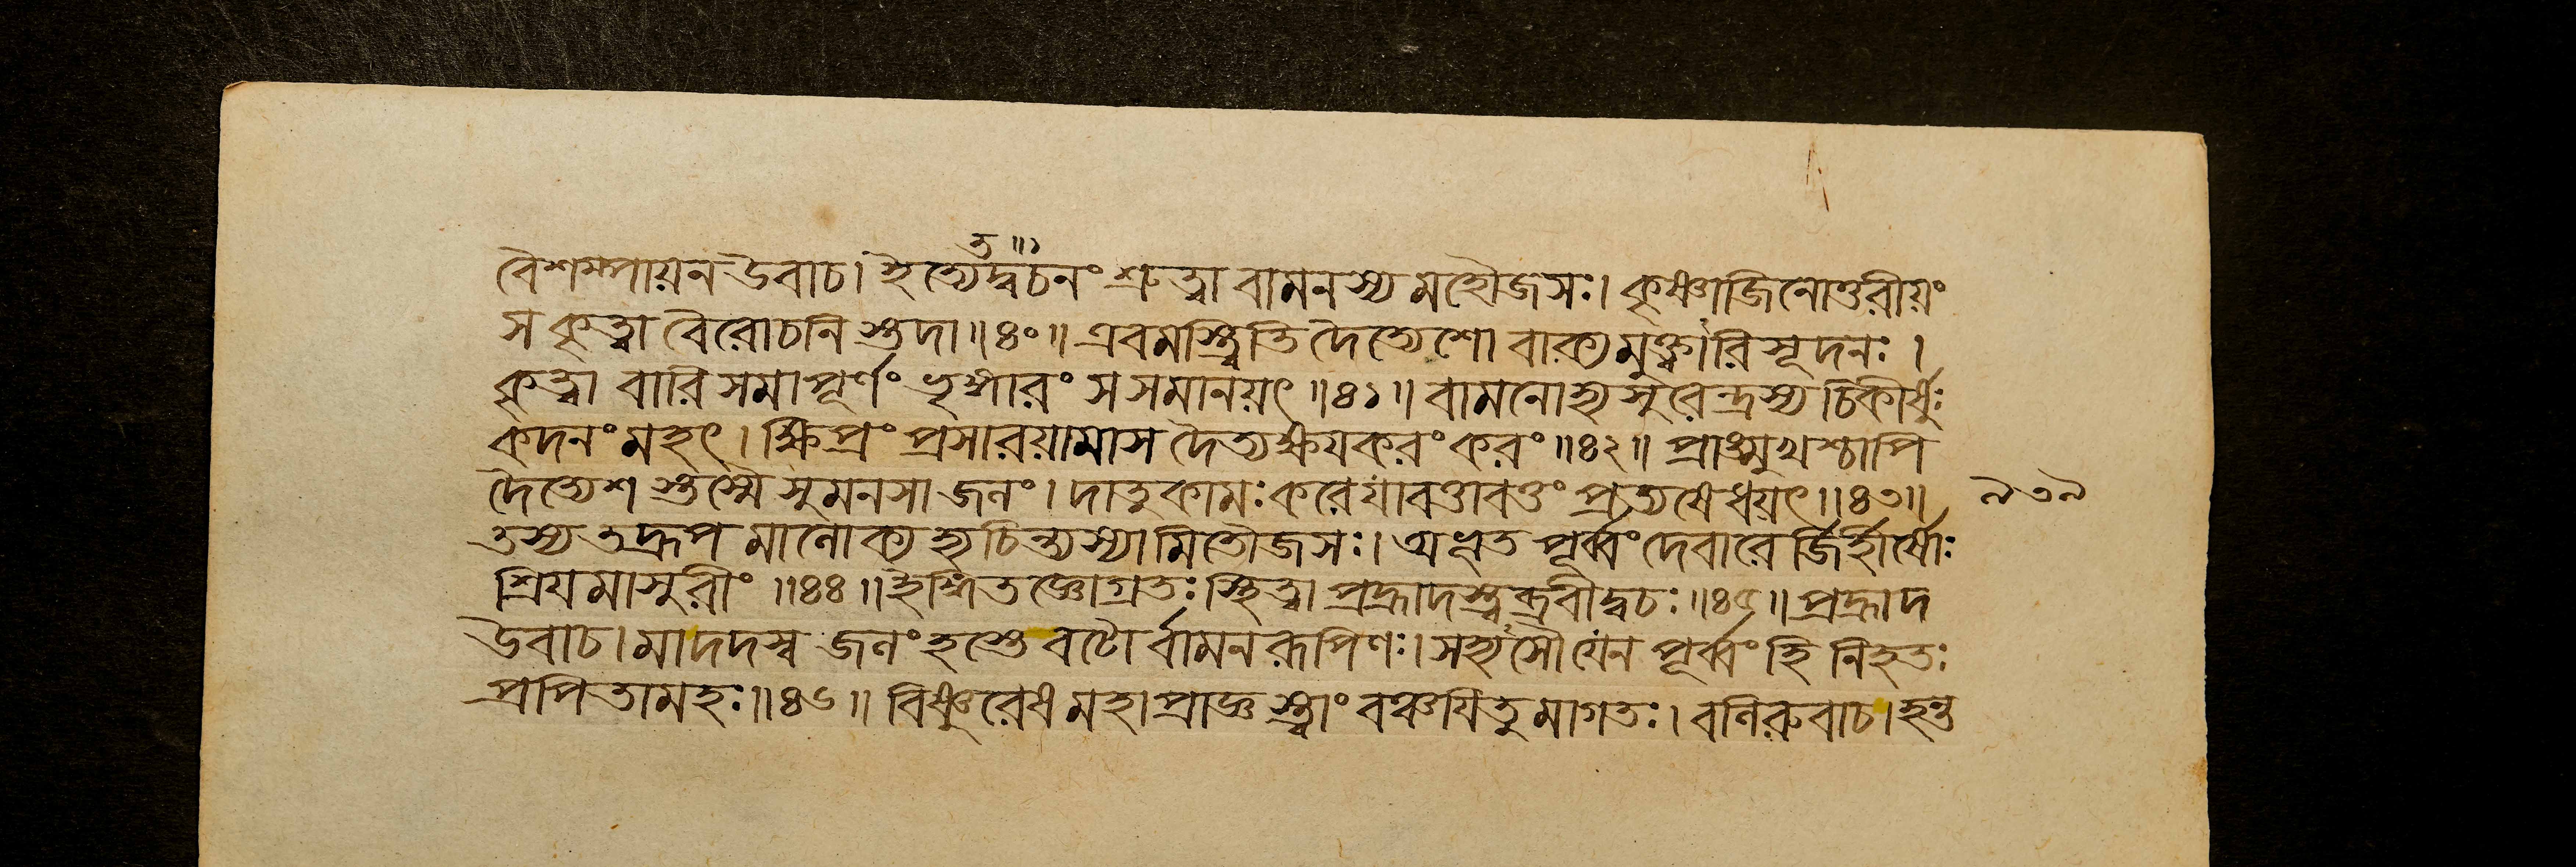 ত॥১
বৈশম্পায়ন উবাচ। ইত্যেদ্বচনং শ্রুত্বা বামনস্য মহৌজসঃ। কৃষ্ণাজিনোত্তরীয়ং
স কৃত্বা বৈরোচনি স্তদা॥৪০॥ এবমস্ত্বিতি দৈত্যেশো বাক্যমুক্ত্বারি সূদনঃ।
কৃত্বা বারি সমাপূর্ণং ভৃঙ্গারং স সমানয়ৎ॥৪১॥ বামনোহ্যসুরেন্দ্রস্য চিকীর্ষুঃ
কদনং মহৎ। ক্ষিপ্রং প্রসারয়ামাস দৈত্যক্ষয়করং করং॥৪২॥ প্রাঙ্মুখশ্চাপি
দৈত্যেশ স্তস্মৈ সুমনসা জলং। দাতুকামঃ করে যাবত্তাবত্তং প্রত্যষেধয়ৎ॥৪৩॥ ৯৩৯
তস্য তদ্রূপ মালোক্য হ্যচিন্ত্যস্যামিতৌজসঃ। অভূত পূর্ব্বং দেবারে র্জিহীর্ষোঃ
শ্রিয়মাসুরীং॥৪৪॥ ইঙ্গিতজ্ঞোগ্রতঃ স্থিত্বা প্রহ্লাদস্ত্বব্রবীদ্বচঃ॥৪৫॥ প্রহ্লাদ
উবাচ। মাদদস্ব জলং হস্তে বটো র্বামনরূপিণঃ। সহ্যসৌ যেন পূর্ব্বং হি নিহতঃ
প্রপিতামহঃ॥৪৬॥ বিষ্ণুরেষ মহাপ্রাজ্ঞ স্ত্বাং বঞ্চয়িতুমাগতঃ। বলিরুবাচ। হন্ত